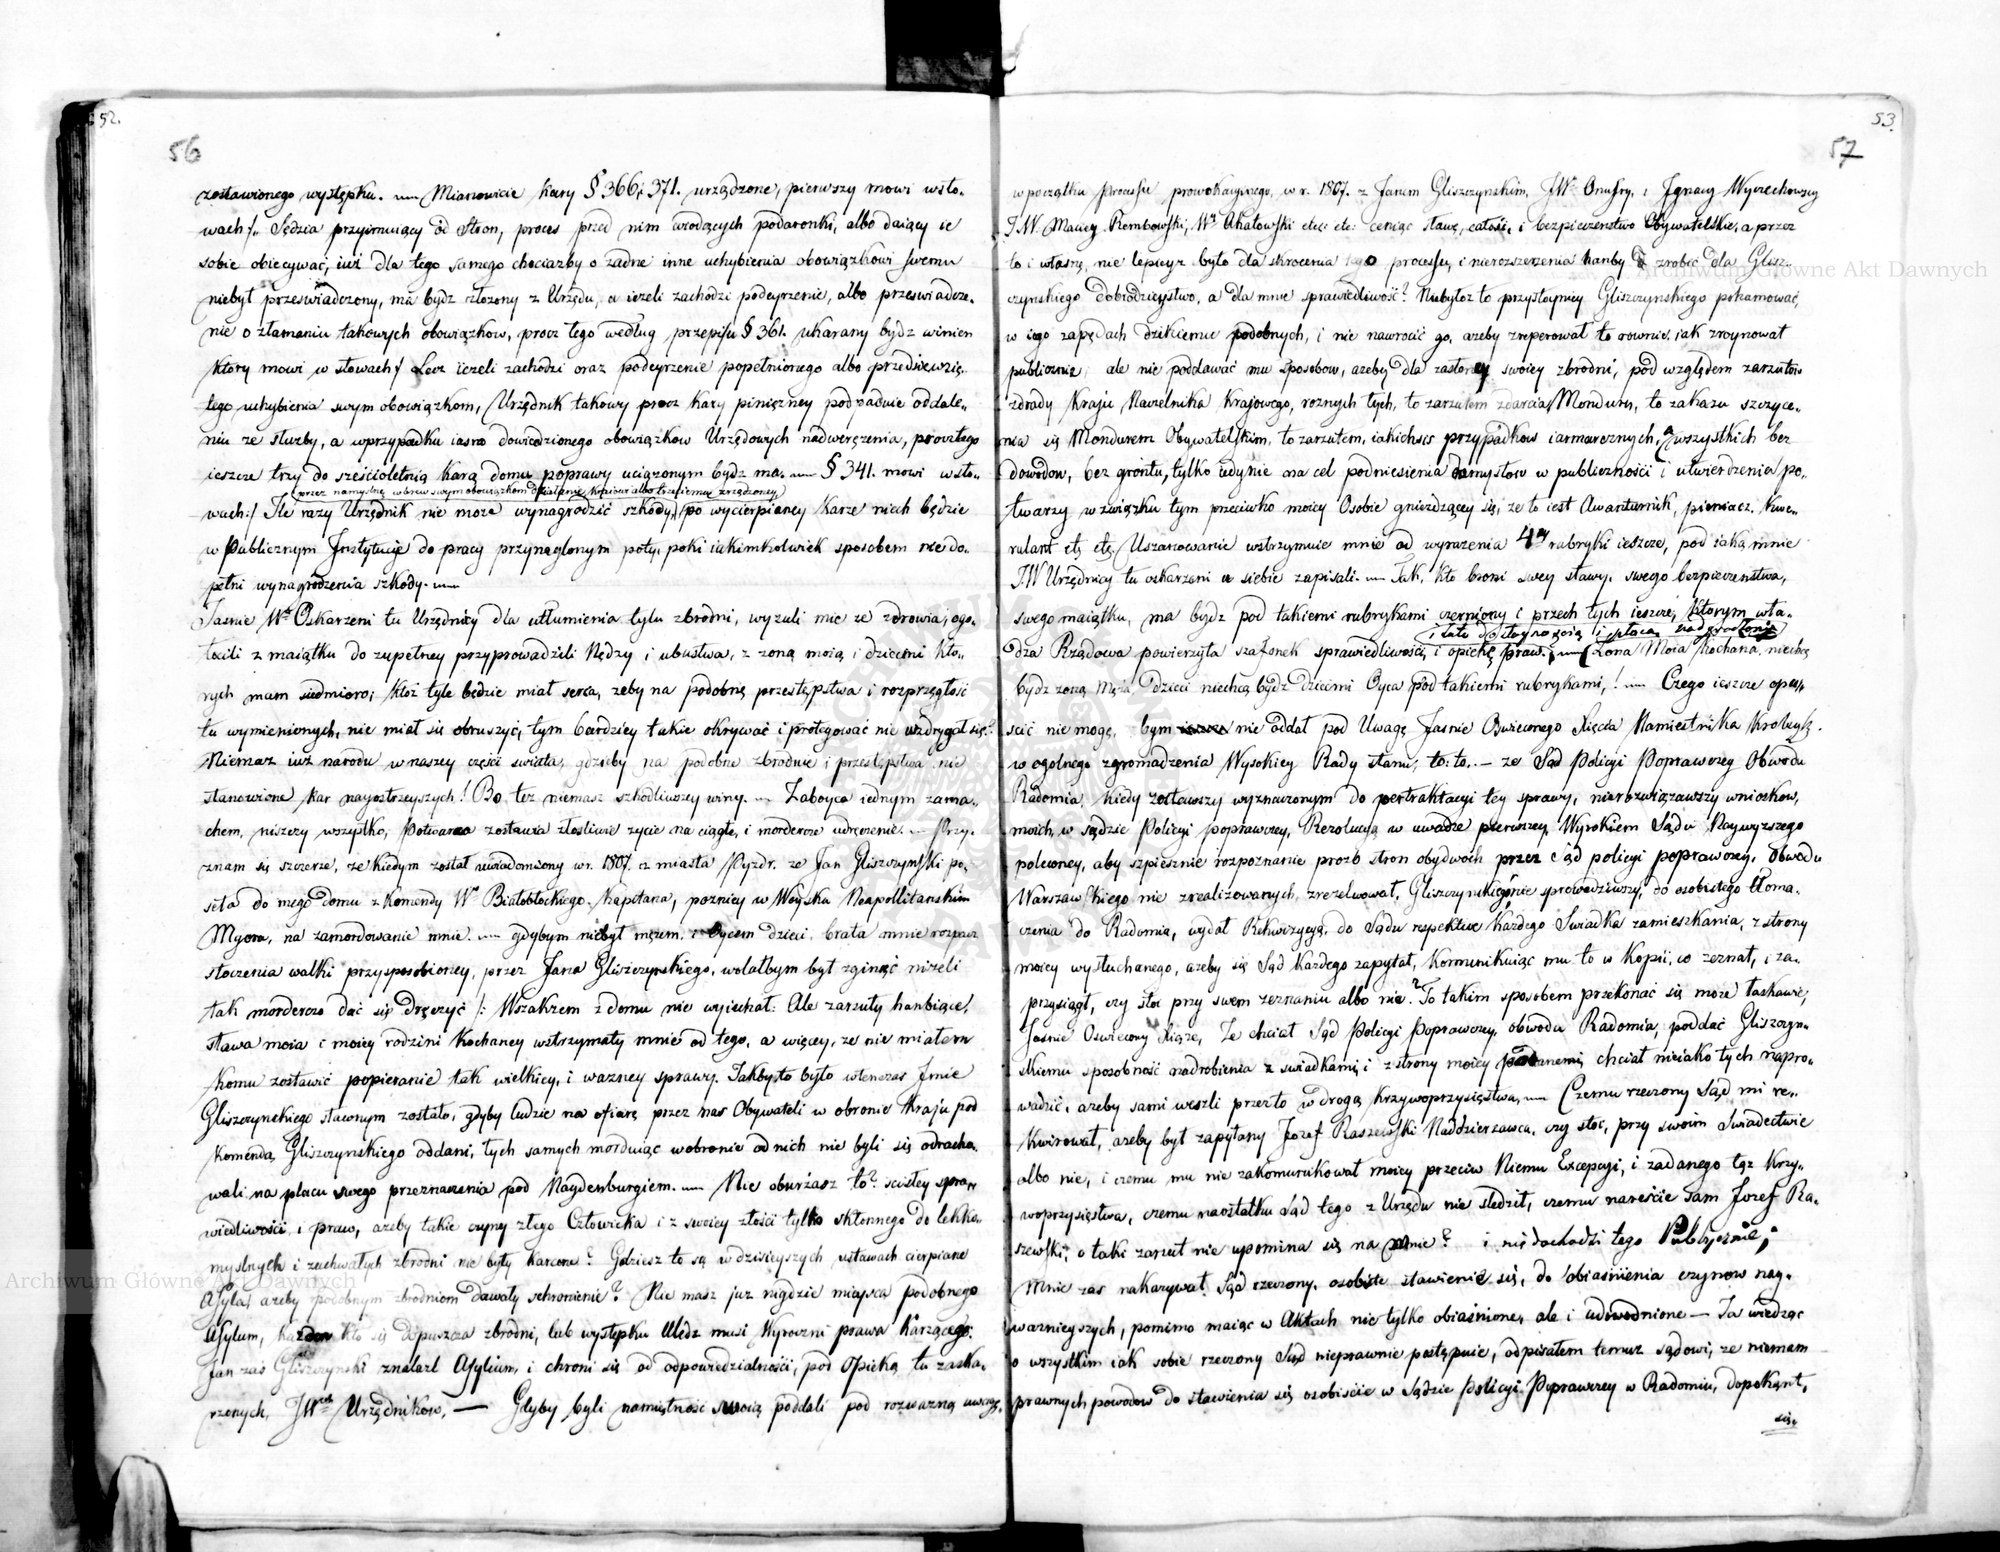 52.
56
zostawionego występku. — Mianowicie kary § 366, i 371. urządzone, pierwszy mowi w sło-
wach /: Sędzia przyimuiący od Stron, proces przed nim wiodących podaronki, albo daiący ie
sobie obiecywać, iuż dla tego samego chociażby o żadne inne uchybienia obowiązkowi swemu
niebył przeswiadczony, ma bydz złożony z Urzędu, a ieżeli zachodzi podeyrzenie, albo przeswiadcze-
nie o złamaniu takowych obowiązkow, procz tego według przepisu § 361. ukarany bydz winien
ktory mowi w słowach / Lecz ieżeli zachodzi oraz podeyrzenie popełnionego albo przedsięwzię-
tego uchybienia swym obowiązkom, Urzędnik takowy procz kary pinięzney podpadnie oddale-
niu ze służby, a w przypadku iasno dowiedzionego obowiązkow Urzędowych nadwerężenia, procz tego
ieszcze trzy do sześcioletnią karą domu poprawy uciążonym bydz ma. — § 341. mowi w sło-
przez namyślne wbrew swym obowiązkom działanie Kraiowi albo trzeciemu zrządzoney
wach:/ Ile razy Urzędnik nie może wynagrodzić szkody, po wycierpianey karze niech będzie
w Publicznym Instytucie do pracy przynaglonym poty, poki iakimkolwiek sposobem nie do-
pełni wynagrodzenia szkody. —
Jasnie Wni Oskarżeni tu Urzędnicy dla utłumienia tylu zbrodni, wyzuli mie ze zdrowia, ogo-
łocili z maiątku do zupełney przyprowadzili Nędzy i ubustwa, z żoną moią i dziecmi kto-
rych mam siedmioro; któż tyle będzie miał serca, żeby na podobnę przestępstwa i rozprzęgłość
tu wymienionych, nie miał się obruszyć, tym bardziey takie okrywać i protegować nie wzdrygał się?
Niemasz iuż narodu w naszey części swiata, gdzieby na podobne zbrodnie i przestępstwa nie
stanowione kar nayostrzeyszych! Bo też niemasz szkodliwszey winy. — Zaboyca iednym zama-
chem, niszczy wszystko, Potwarca zostawia złosliwie życie na ciągłe, i mordercze udręczenie. — Przy-
znam się szczerze, że kiedym został uwiadomiony w r. 1807. z miasta Pyzdr. że Jan Gliszczynski po-
syła do mego domu z komendy Wo Białobłockiego Kapitana, pozniey w Woysku Neapolitańskim
Mjora, na zamordowanie mnie. — gdybym niebył mężem, i Oycem dzieci, brata mnie rozpacz
stoczenia walki przysposobioney, przez Jana Gliszczynskiego, wolałbym był zginąć niżeli
tak morderczo dać się dręczyć /: Wszakżem z domu nie wyiechał: Ale zarzuty hanbiące!
sława moia i moiey rodzini Kochaney wstrzymały mnie od tego, a więcey, że nie miałem
komu zostawić popieranie tak wielkiey, i ważney sprawy. Jakby to było wtenczas Jmie
Gliszczynskiego sławnym zostało, gdyby ludzie na ofiarę przez nas Obywateli w obronie Kraju pod
komendą Gliszczynskiego oddani, tych samych morduiąc w obronie od nich nie byli się odracho-
wali na placu swego przeznaczenia pod Magdenburgiem. — Nie oburzasz to? scisłey spra-
wiedliwości i praw, ażeby takie czyny złego Człowieka i z swoiey złości tylko skłonnego do lekko-
myslnych i zuchwałych zbrodni nie były karcone? Gdzież to są w dzisieyszych ustawach cierpiane
Asyla, ażeby podobnym zbrodniom dawały schronienie? Nie masz już nigdzie mieysca podobnego
Asylum, każden kto się dopuszcza zbrodni, lub występku uledz musi Wyroczni prawa Karzącego.
Jan zas Gliszczynski znalazł Asylium, i chroni się od odpowiedzialności, pod Opieką tu zaska-
rżonych, JWch Urzędnikow. — Gdyby byli namiętność swoię poddali pod rozważną uwagę,
53.
57
w początku Processu prowokacyinego, w r. 1807. z Janem Gliszczynskim, JWn Onufry, i Ignacy Wyciechowscy
J.W. Maciey Rembowski, Wny Chatowski etc: etc: ceniąc sławę, całość, i bezpieczenstwo Obywatelskie, a przez
to i własną, nie lepieyż było dla skrocenia tego processu, i nierozszerzenia hanby zrobić dla Glisz-
czynskiego dobrodzieystwo, a dla mnie sprawiedliwość? Niebyłoż to przystoyniey Gliszczynskiego pohamować,
w iego zapędach dzikiemu podobnych, i nie nawrocić go, ażeby zreperował to rownie iak zroynował
publicznie, ale nie poddawać mu sposobow, ażeby dla zasłony swoiey zbrodni, pod względem zarzutow
zdrady Kraju Naczelnika Krajowego, roznych tych, to zarzutem zdarcia Munduru, to zakazu szczyce-
nia się Mondurem Obywatelskim, to zarzutem, iakichsis przypadkow iarmarcznych, a wszystkich bez
dowodow, bez grontu, tylko iedynie na cel podniesienia domysłow w publiczności i utwierdzenia po-
twarzy w związku tym przeciwko moiey Osobie gnieżdżącey się, że to iest Awanturnik, pieniacz, Kwe-
rulant etc etc. Uszanowanie wstrzymuie mnie od wyrażenia 4ey rubryki ieszcze, pod iaką mnie
J.W Urzędnicy tu oskarżeni u siebie zapisali. — Tak, kto broni swey sławy, swego bezpieczenstwa,
swego maiątku, ma bydz pod takiemi rubrykami czerniony i przez tych ieszcze, ktorym wła-
i łatu dostoynością i płacą nadgrodzenia
dza Rządowa powierzyła szafonek sprawiedliwości, i opiekę praw. — Żona Moia Kochana, niechcę
bydz żoną Męża, dzieci niechcą bydz dziecimi Oyca pod takiemi rubrykami,! — Czego ieszcze opu-
scić nie mogę, bym nie oddał pod Uwagę Jasnie Oswieconego Xięcia Namiestnika Krolewsk.
w ogolnego zgromadzenia Wysokiey Rady stanu; to: to. — że Sąd Policyi Poprawczey Obwodu
Radomia, kiedy zostawszy wyznaczonym do pertraktacyi tey sprawy, nierozwiązawszy wnioskow,
moich, w sądzie Policyi poprawczey, Rezolucyą w uwadze pierwszey, Wyrokiem Sądu Naywyższego
poleconey, aby szpiesznie rozpoznanie prozb stron obydwoch przez Sąd policyi poprawczey, Obwodu
Warszawskiego nie zrealizowanych, zrezolwował, Gliszczynskiego, nie sprowadziwszy, do osobistego tłoma-
czenia do Radomia, wydał Rekwizycyą, do Sądu respektive każdego Swiadka zamieszkania, z strony
moiey wysłuchanego, ażeby się Sąd każdego zapytał, kommunikuiąc mu to w Kopii, co zeznał, i za-
przysiągł, czy stoi przy swem zeznaniu albo nie? To takim sposobem przekonać się może łaskawie,
Jasnie Oswiecony Xiąże, że chciał Sąd Policyi Poprawczey, obwodu Radomia, poddać Gliszczyn-
skiemu sposobność nadrobienia z swiadkami, i z strony moiey podanemi, chciał nieiako tych napro-
wadzić, ażeby sami weszli przez to w drogą Krzywoprzysięstwa, — Czemu rzeczony Sąd mi re-
kwirował, ażeby był zapytany Jozef Raszewski Naddzierżawca, czy stoi, przy swoim Swiadectwie
albo nie, i czemu mu nie zakomunikował moiey przeciw Niemu Excepcyi, i zadanego tąż Krzy-
woprzysięstwa, czemu naostatku Sąd tego z Urzędu nie sledził, czemu nareście sam Jozef Ra-
szewski, o taki zarzut nie upomina się na mnie? i nie dochodzi tego Publicznie;
Mnie zas nakazywał, Sąd rzeczony, osobiste stawienie się, do obiasnienia czynow nay-
ważnieyszych, pomimo maiąc w Aktach nie tylko obiaśnione, ale i udowodnione — Ja wiedząc
o wszystkim iak sobie rzeczony Sąd nieprawnie postępuie, odpisałem temuż sądowi, że niemam
prawnych powodow do stawienia się osobiście w Sądzie Policyi Poprawczey w Radomiu, dopokąnt,
się
Archiwum Główne Akt Dawnych
Archiwum Główne Akt Dawnych